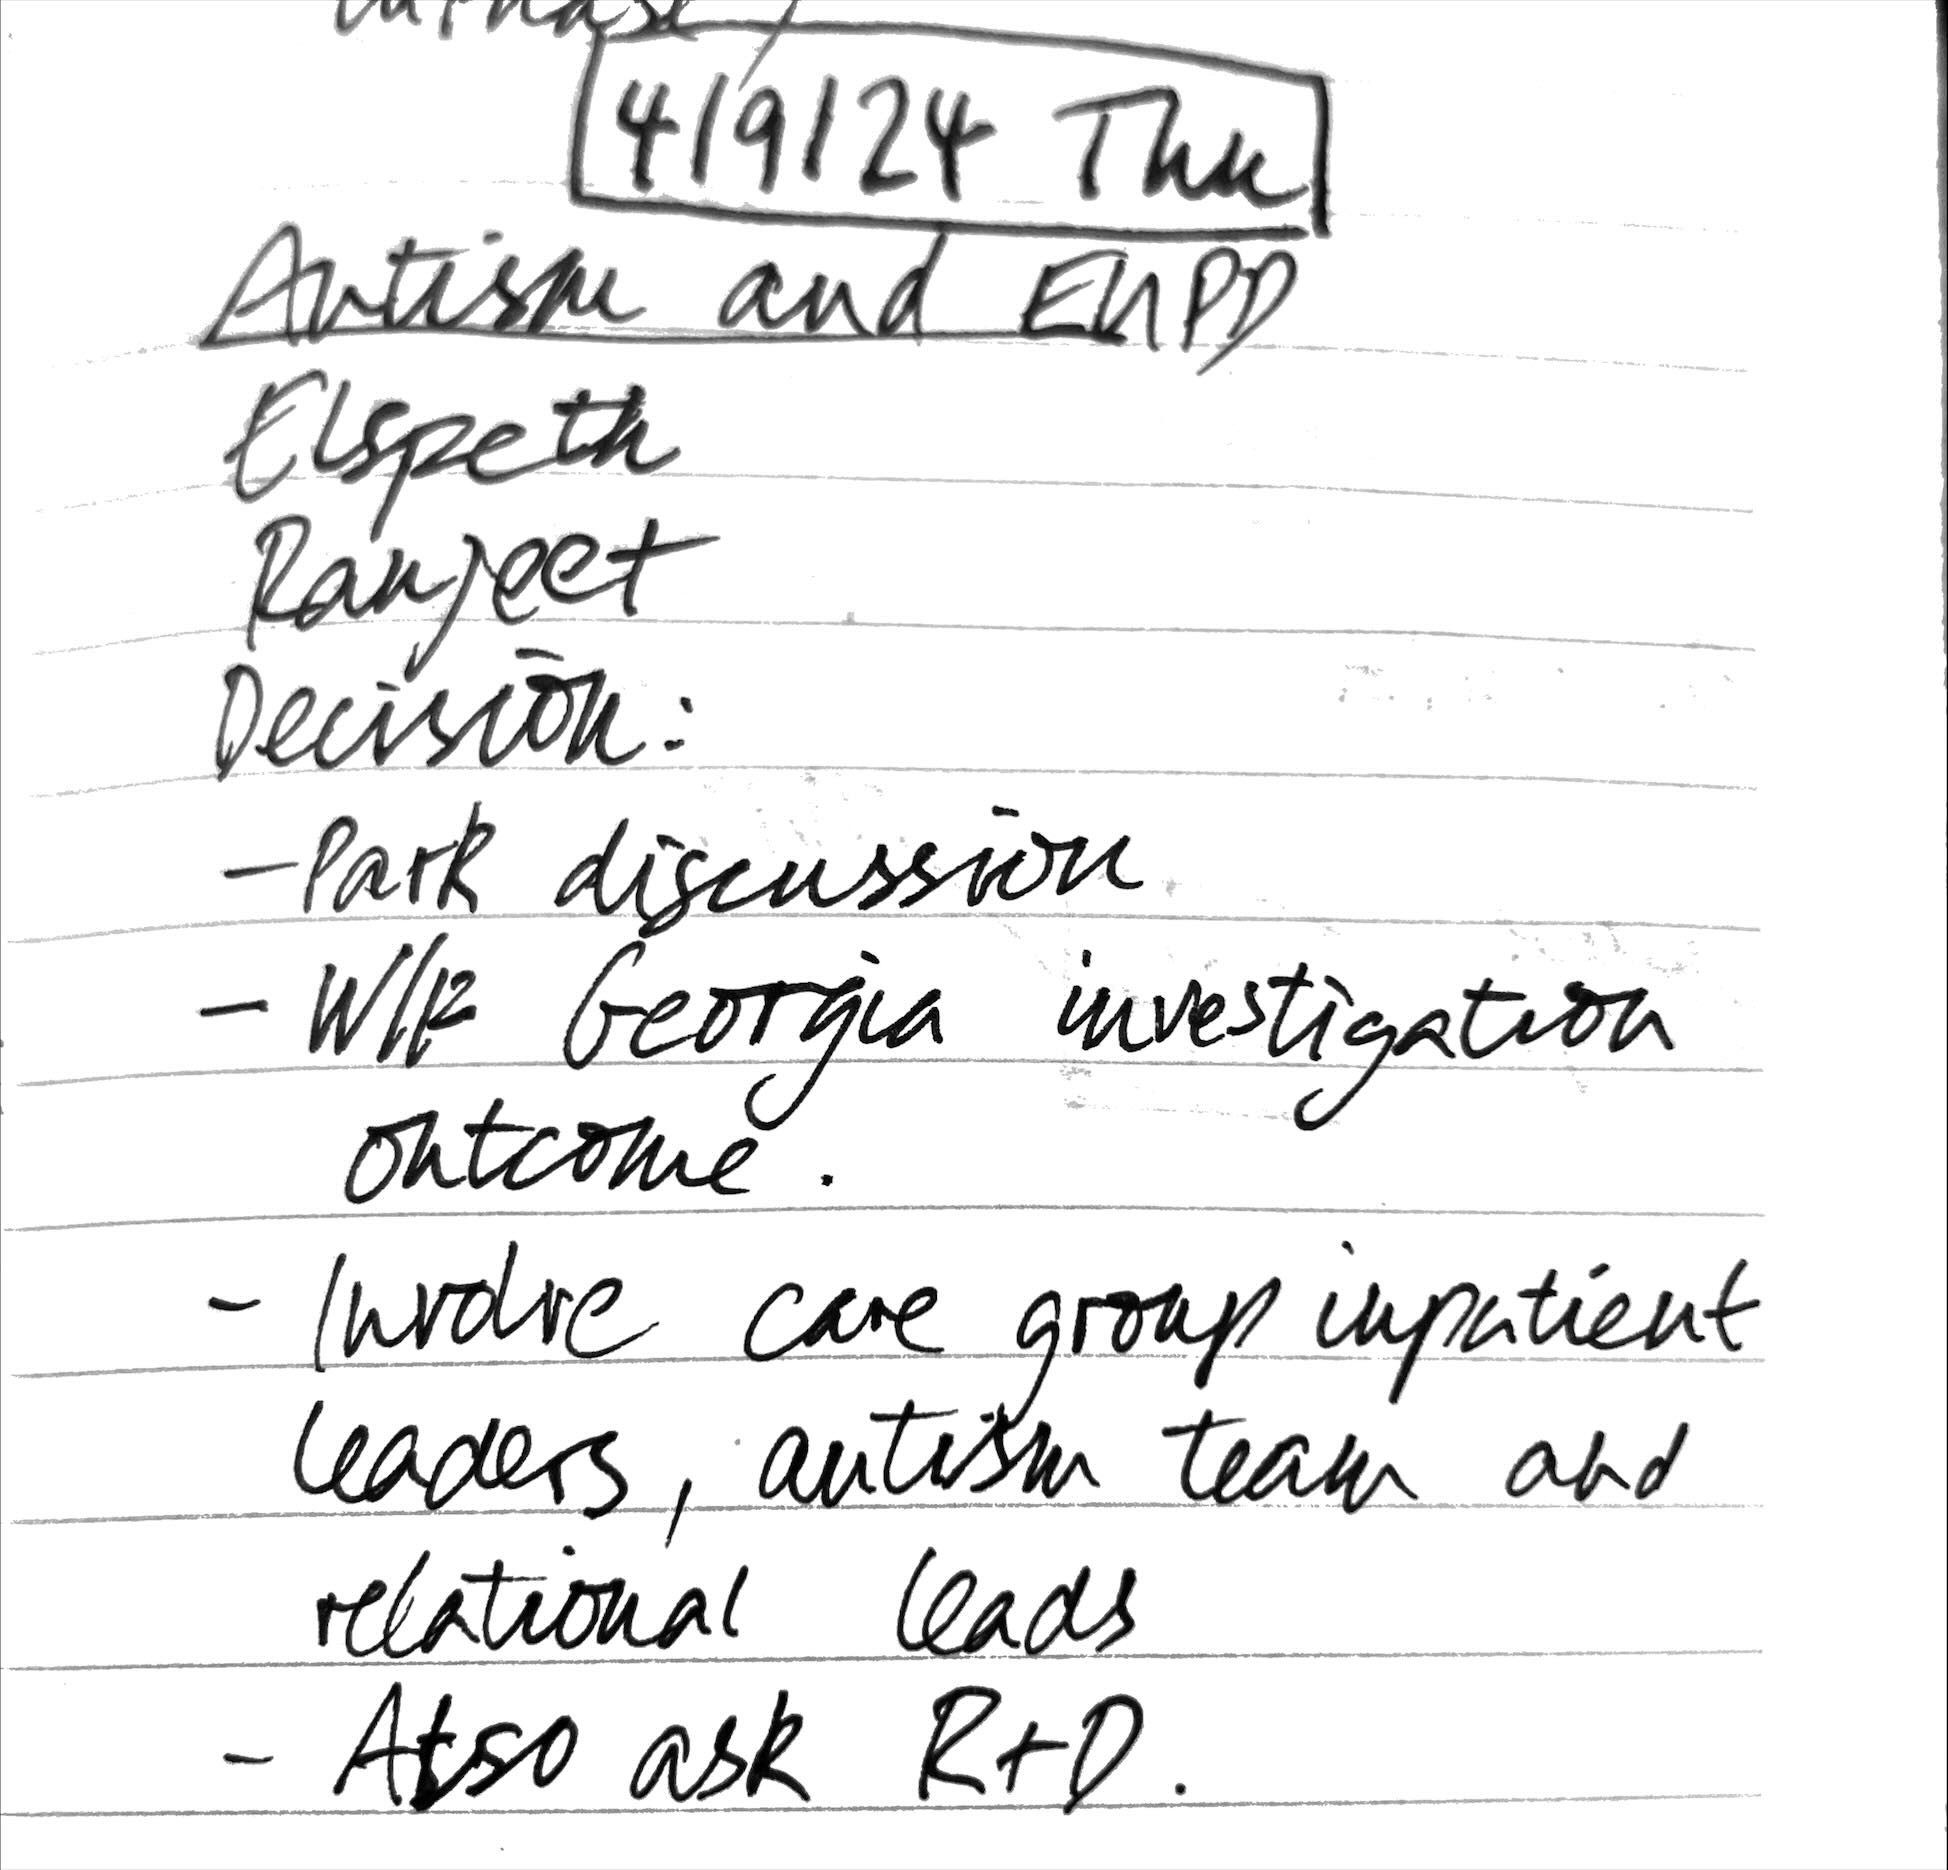 4/9/24 Thu
Autism and EUPD
Elspeth
Ranjeet
Decision:
- Park discussion
- Georgia investigation
outcome.
- Involve care group inpatient
leaders, autism team and
relational leads
- Also ask R+D.